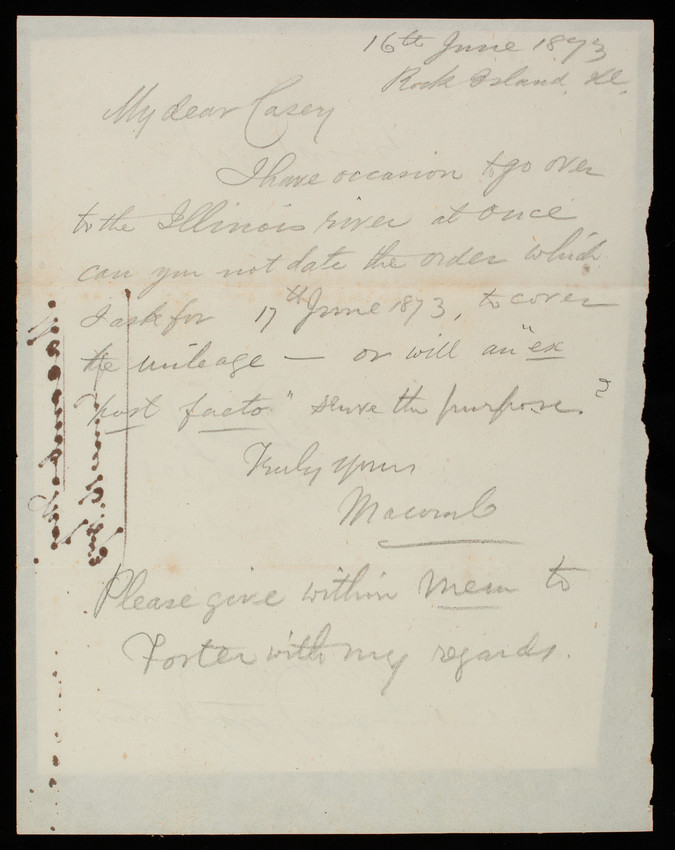 16th June 1873
Rock Island, Ill.
My dear Casey
I have occasion to go over
to the Illinois river at once
can you not date the order which
I ask for 17th June 1873, to cover
the mileage — or will an "ex
post facto" serve the purpose?
Truly yours
Macomb
Please give within mem to
Foster with my regards.